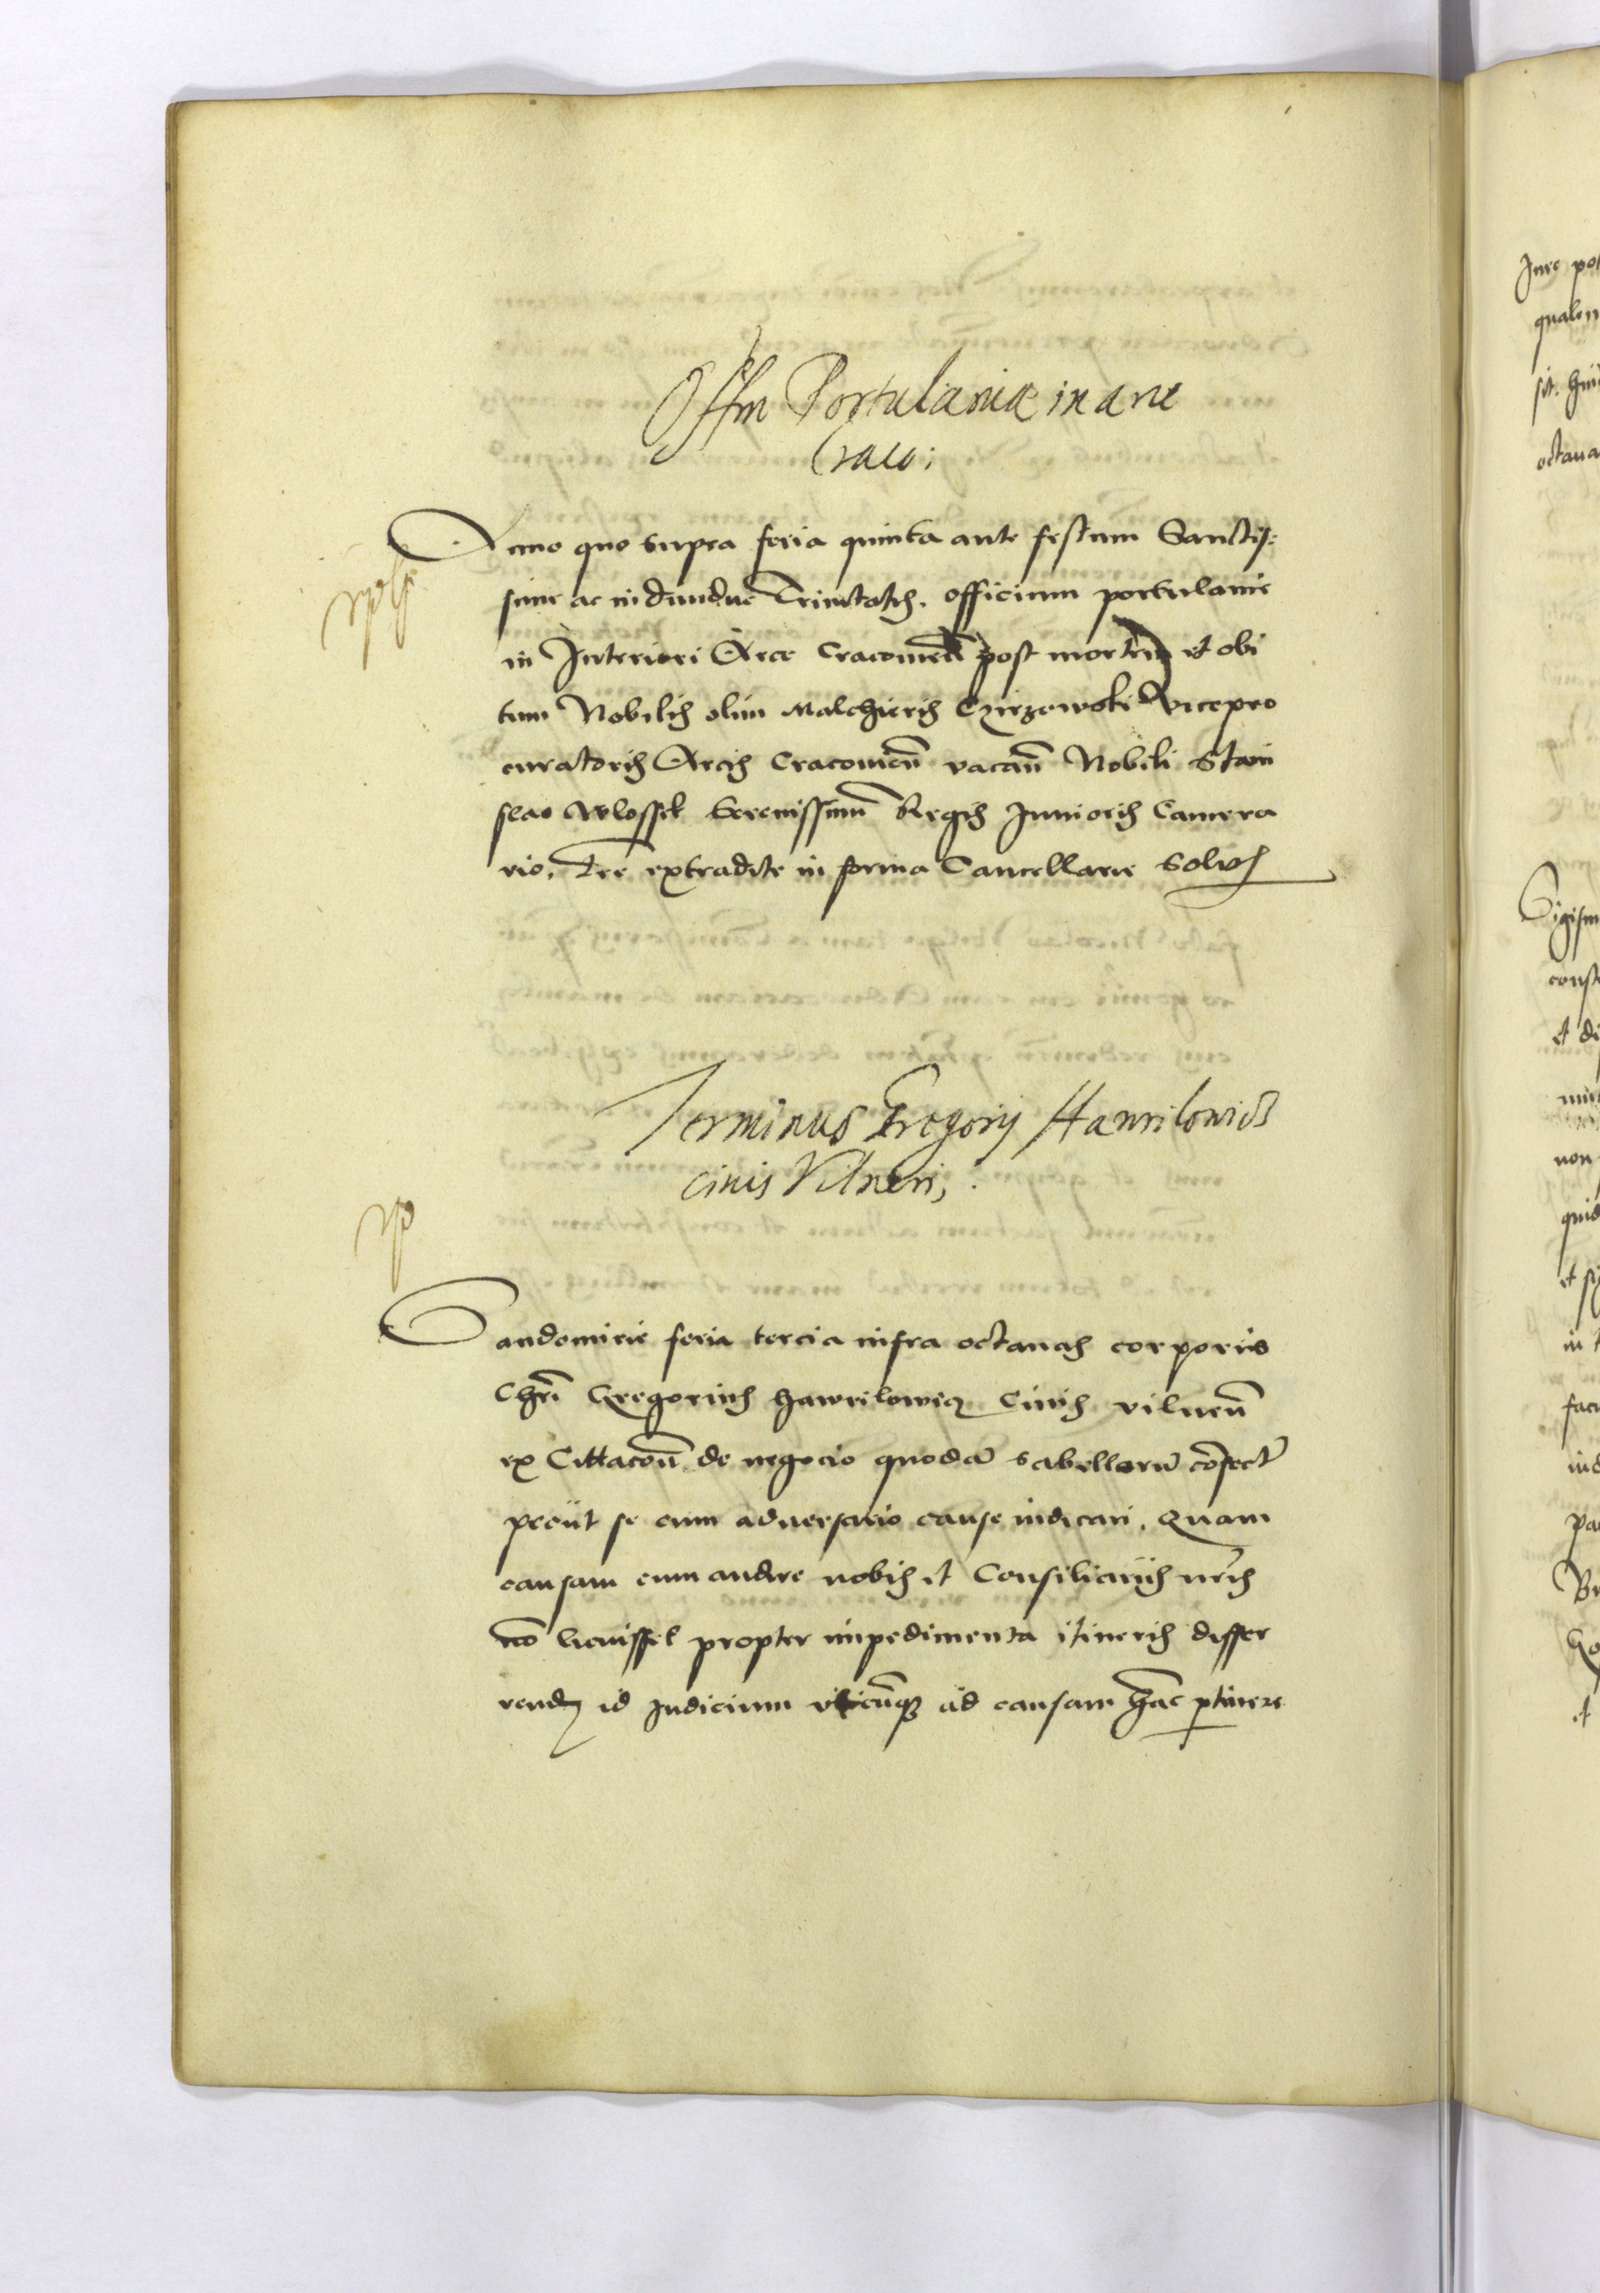 Offm Portulaniae in arce
Craco:
Anno quo supra feria quinta ante festum Sanctis:
sime ac indiuidue Trinitatis. officium portulanie
in Interiori Arce Cracouien post mortem et obi
tum Nobilis olim Malchieris Czirzowski Vicepro
curatoris Arcis Cracouien vacan Nobili Stani
slao Wlossek Serenissimi Regis Iunioris Camera
rio. extradite in forma Cancellarie
Terminus Gregorij Hawrilowicz
ciuis Vilnen,
Sandomirie feria tercia infra octauas corporis
Chri Gregorius Hawrilowicz Ciuis vilnen
ex Cittacon de negocio quoda sabellorum
petiit se cum aduersario cause iudicari. Quam
causam cum audire nobis et Consiliarijs nris
no licuisset propter impedimenta itineris differ
rendum id Iudicium ad causam hac ptinere